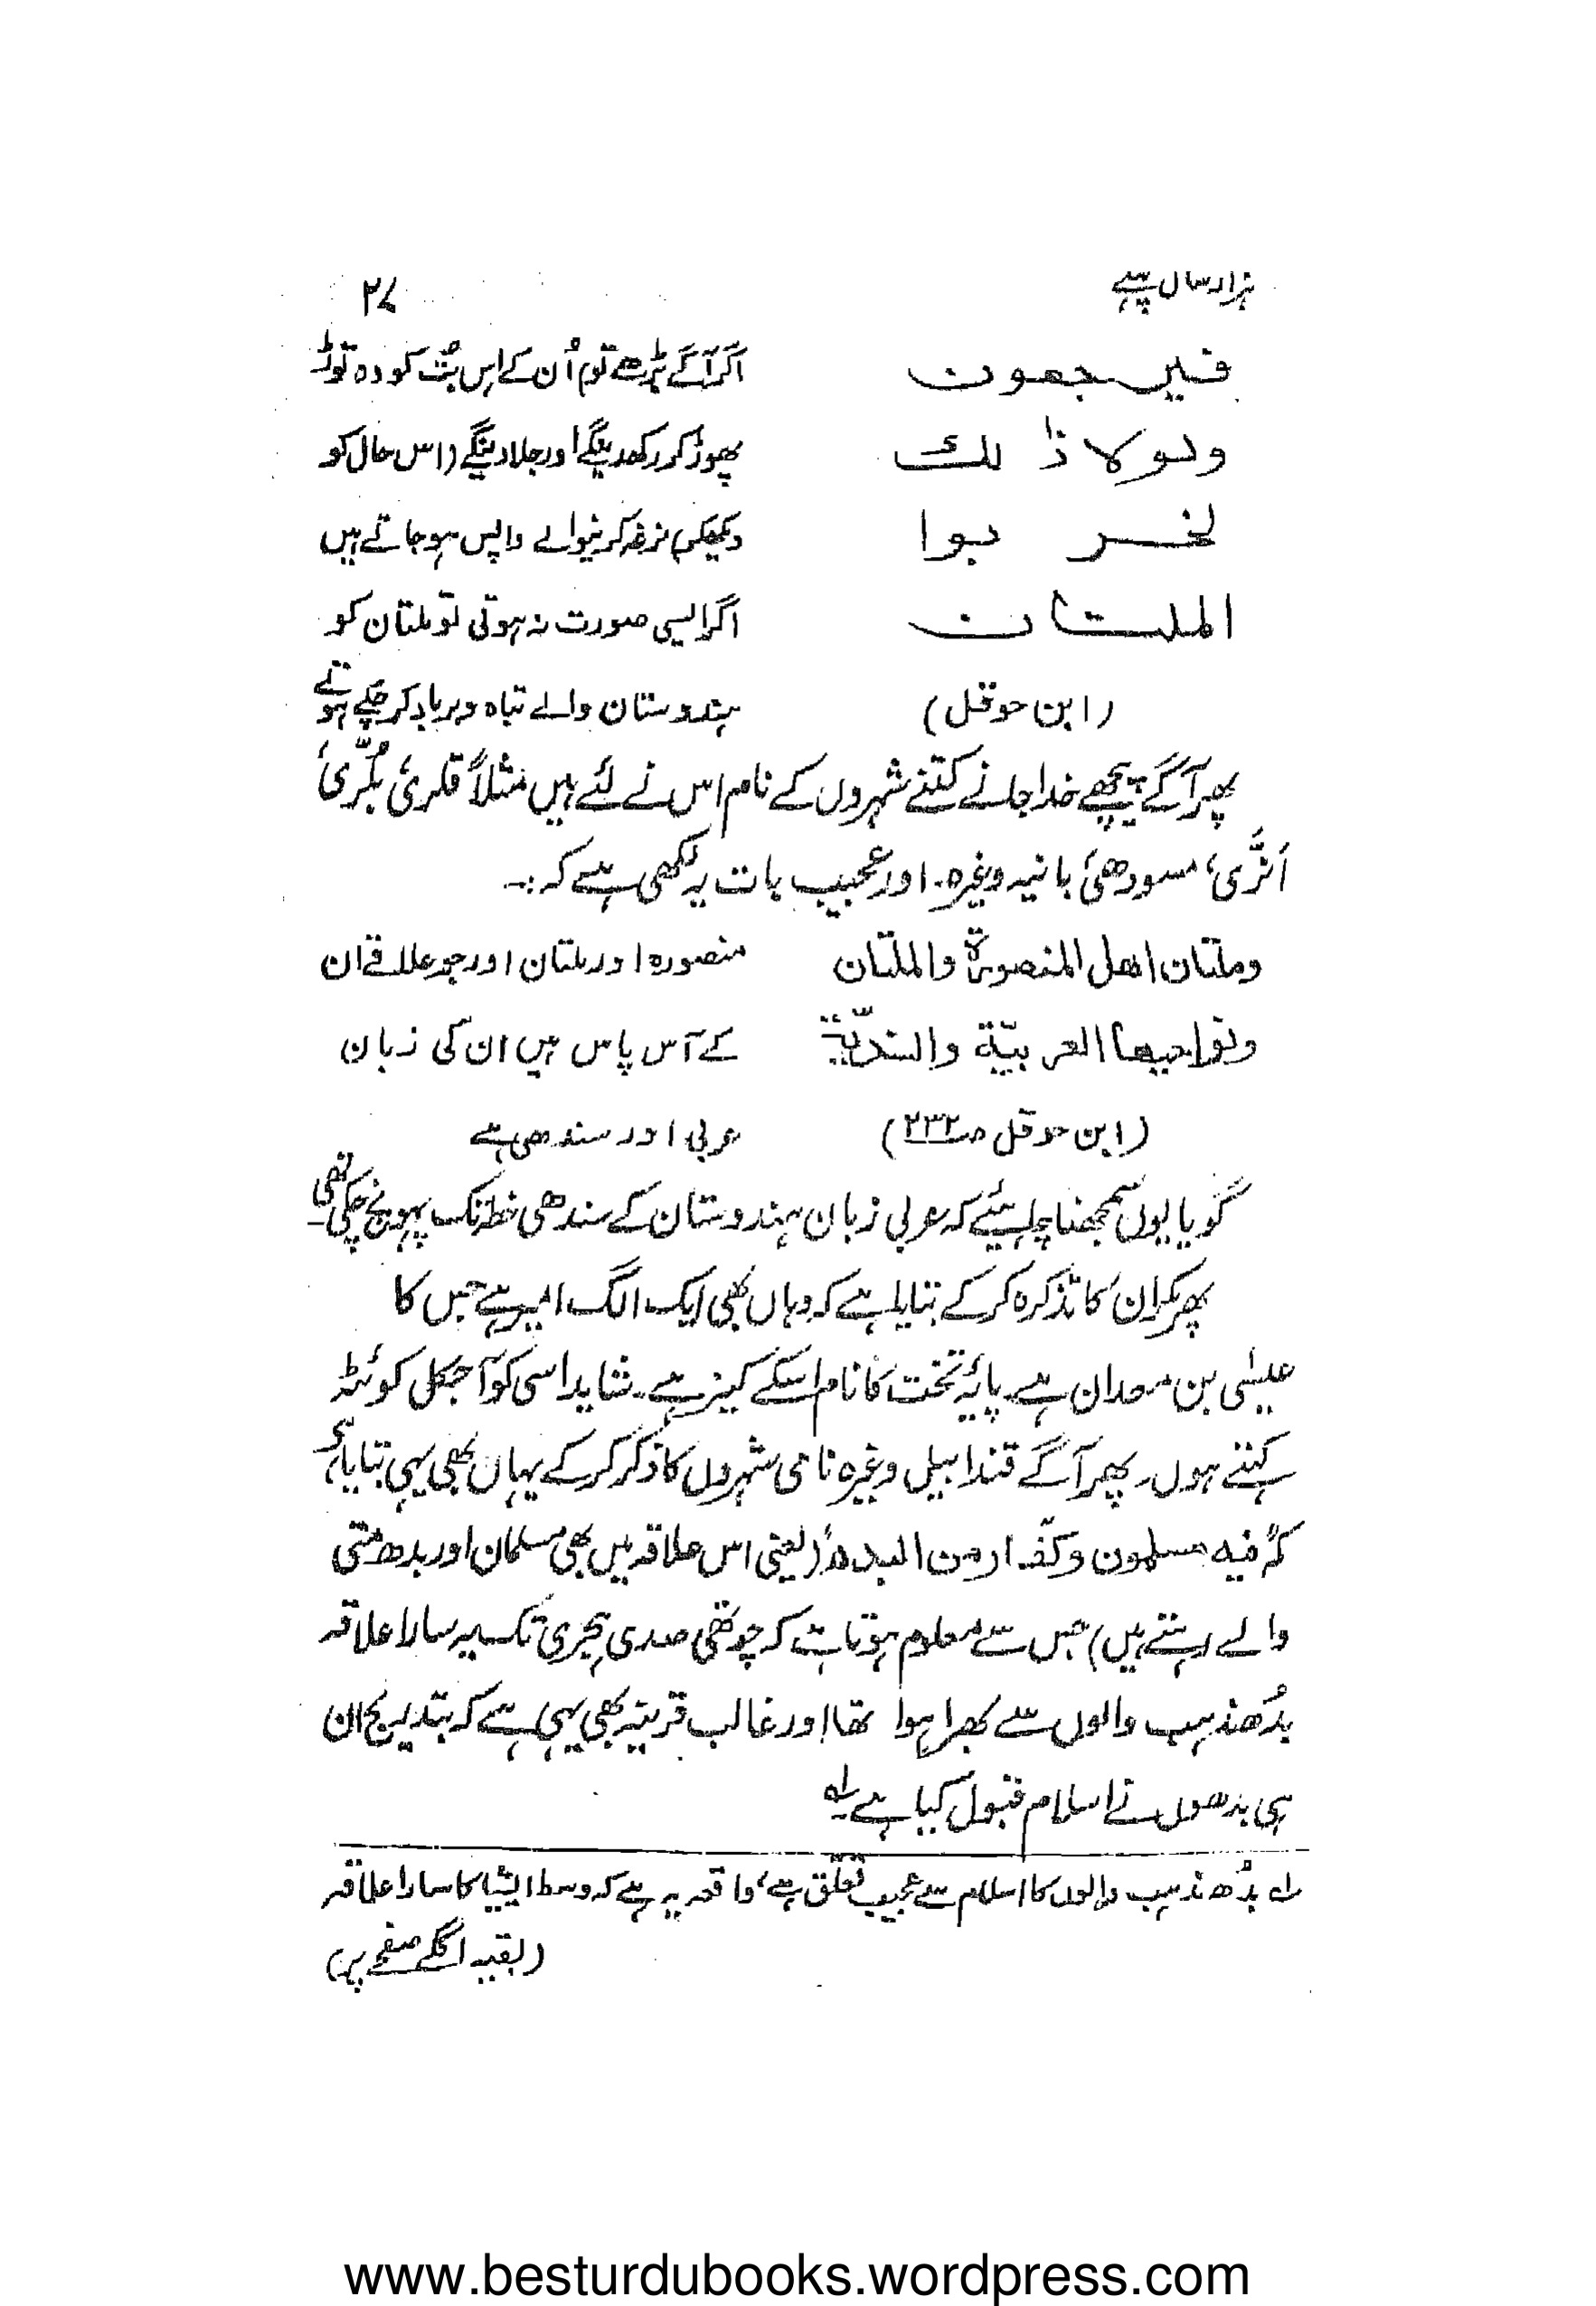 ہزار سال پہلے ۲۷
فیرجعون اگر آگے بڑھے تو ہم اُن کے اس بُت کو وہ توڑ
ولولا ذٰلك پھوڑ کر رکھدینگے اور جلا دینگے (اس حال کو
لخربوا دیکھکر) نرغہ کرنیوالے واپس ہوجاتے ہیں
الملتان اگر ایسی صورت نہ ہوتی تو ملتان کو
(ابن حوقل) ہندوستان والے تباہ و برباد کر چکے ہوتے
پھر آگے پیچھے خدا جانے کتنے شہروں کے نام اس نے لئے ہیں مثلاً قلری، بلّری،
انرّی، مسودھی، بانیہ وغیرہ۔ اور عجیب بات یہ لکھی ہے کہ :۔
وملتان اهل المنصورة والملتان منصورہ اور ملتان اور جو علاقے ان
ونواحيها العربيّة والسندّية کے آس پاس ہیں ان کی زبان
(ابن حوقل صـ۲۳۲) عربی اور سندھی ہے
گویا یوں سمجھنا چاہیئے کہ عربی زبان ہندوستان کے سندھی خطہ تک پہونچ چکی تھی۔
پھر مکران کا تذکرہ کرکے بتایا ہے کہ وہاں بھی ایک الگ امیر ہے جس کا
عیسٰی بن معدان ہے۔ پائہ تخت کا نام اسکے کیز ہے۔ شاید اسی کو آجکل کوئٹہ
کہتے ہوں۔ پھر آگے قندابیل وغیرہ نامی شہروں کا ذکر کرکے یہاں بھی یہی بتایا ہے
کہ "فیہ مسلمون وکفّار من البدھ" (یعنی اس علاقہ میں بھی مسلمان اور بدھ متی
والے رہتے ہیں) جس سے معلوم ہوتا ہے کہ چوتھی صدی ہجری تک یہ سارا علاقہ
بُدھ مذہب والوں سے بھرا ہوا تھا اور غالب قرینہ بھی یہی ہے کہ بتدریج ان
ہی بدھوں نے اسلام قبول کیا ہے۔ لہ
لہ بُدھ مذہب والوں کا اسلام سے عجیب تعلّق ہے، واقعہ یہ ہے کہ وسط ایشیا کا سارا علاقہ
(بقیہ اگلے صفحے پر)
www.besturdubooks.wordpress.com